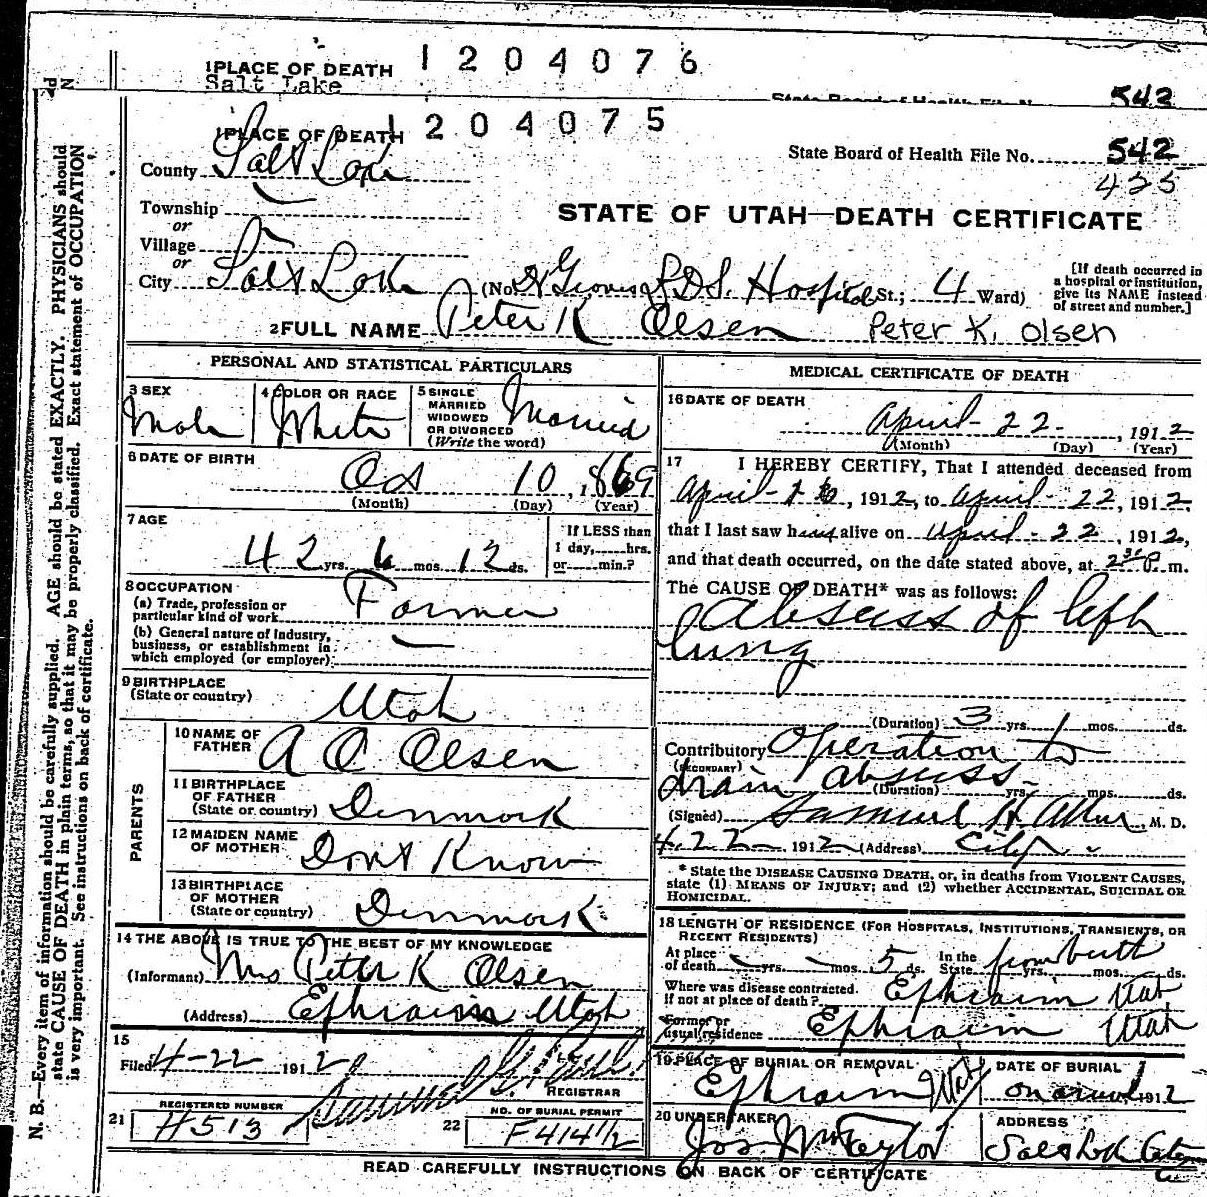 1PLACE OF DEATH 1204076
Salt Lake
State Board of Health File N 542
1PLACE OF DEATH 1204075
State Board of Health File No. 542
425
County Salt Lake
Township
or
Village
or
City Salt Lake (No. Groves L.D.S. Hospital St.; 4 Ward)
[If death occurred in a hospital or institution, give its NAME instead of street and number.]
STATE OF UTAH—DEATH CERTIFICATE
2FULL NAME Peter K Olsen Peter K. Olsen
PERSONAL AND STATISTICAL PARTICULARS
3 SEX Male
4 COLOR OR RACE White
5 SINGLE MARRIED WIDOWED OR DIVORCED (Write the word) Married
6 DATE OF BIRTH Oct 10, 1869
(Month) (Day) (Year)
7 AGE 42 yrs. 6 mos. 12 ds.
If LESS than 1 day, hrs. or min.?
8 OCCUPATION
(a) Trade, profession or particular kind of work Farmer
(b) General nature of industry, business, or establishment in which employed (or employer)
9 BIRTHPLACE (State or country) Utah
PARENTS
10 NAME OF FATHER A C Olsen
11 BIRTHPLACE OF FATHER (State or country) Denmark
12 MAIDEN NAME OF MOTHER Dont Know
13 BIRTHPLACE OF MOTHER (State or country) Denmark
14 THE ABOVE IS TRUE TO THE BEST OF MY KNOWLEDGE
(Informant) Mrs Peter K Olsen
(Address) Ephraim Utah
15
Filed 4-22 1912
REGISTRAR
21 REGISTERED NUMBER H513
22 NO. OF BURIAL PERMIT F414 1/2
MEDICAL CERTIFICATE OF DEATH
16 DATE OF DEATH
April 22, 1912
(Month) (Day) (Year)
17 I HEREBY CERTIFY, That I attended deceased from
April, 1912, to April 22, 1912,
that I last saw him alive on April 22, 1912,
and that death occurred, on the date stated above, at 2 30 P. m.
The CAUSE OF DEATH* was as follows:
Absess of left
lung
(Duration) 3 yrs. 1 mos. ds.
Contributory (SECONDARY) Operation to
drain absess
(Duration) yrs. mos. ds.
(Signed) Samuel H Allen, M. D.
4.22 1912 (Address) City
* State the DISEASE CAUSING DEATH, or, in deaths from VIOLENT CAUSES, state (1) MEANS OF INJURY; and (2) whether ACCIDENTAL, SUICIDAL OR HOMICIDAL.
18 LENGTH OF RESIDENCE (FOR HOSPITALS, INSTITUTIONS, TRANSIENTS, OR RECENT RESIDENTS)
At place of death yrs. mos. 5 ds. In the State from birth yrs. mos. ds.
Where was disease contracted. If not at place of death? Ephraim Utah
Former or usual residence Ephraim Utah
19 PLACE OF BURIAL OR REMOVAL Ephraim Utah
DATE OF BURIAL 1912
20 UNDERTAKER Jos. Wm Taylor
ADDRESS Salt Lak City
READ CAREFULLY INSTRUCTIONS ON BACK OF CERTIFICATE
N. B.—Every item of information should be carefully supplied. AGE should be stated EXACTLY. PHYSICIANS should
state CAUSE OF DEATH in plain terms, so that it may be properly classified. Exact statement of OCCUPATION
is very important. See instructions on back of certificate.